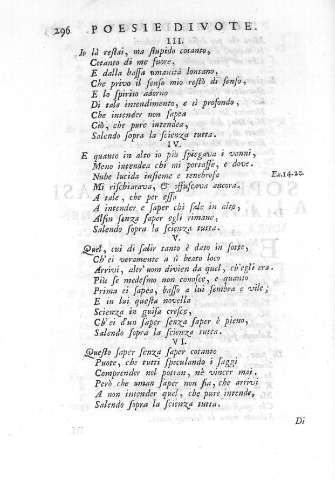 296 POESIE DIVOTE.
III.
Io là restai, ma stupido cotanto,
Cotanto di me fuore,
E dalla bassa umanità lontano,
Che privo il senso mio restò di senso,
E lo spirito adorno
Di tale intendimento, e sì profondo,
Che intender non sapea
Ciò, che pure intendea,
Salendo sopra la scienza tutta.
IV.
E quanto in alto io più spiegava i vanni,
Meno intendea chi mi portasse, e dove.
Nube lucida insieme e tenebrosa Ex. 14-20.
Mi rischiarava, & offuscava ancora.
A tale, che per essa
A intender e saper chi sale in alto,
Alfin senza saper egli rimane,
Salendo sopra la scienza tutta.
V.
Quel, cui di salir tanto è dato in sorte,
Ch'ei veramente a sì beato loco
Arrivi, altr'uom divien da quel, ch'egli era.
Più se medesmo non conosce, e quanto
Prima ei sapea, basso a lui sembra e vile;
E in lui questa novella
Scienza in guisa cresce,
Ch'ei d'un saper senza saper è pieno,
Salendo sopra la scienza tutta.
VI.
Questo saper senza saper cotanto
Puote, che tutti speculando i saggi
Comprender nol potran, nè vincer mai.
Però che uman saper non fia, che arrivi
A non intender quel, che pure intende,
Salendo sopra la scienza tutta.
Di